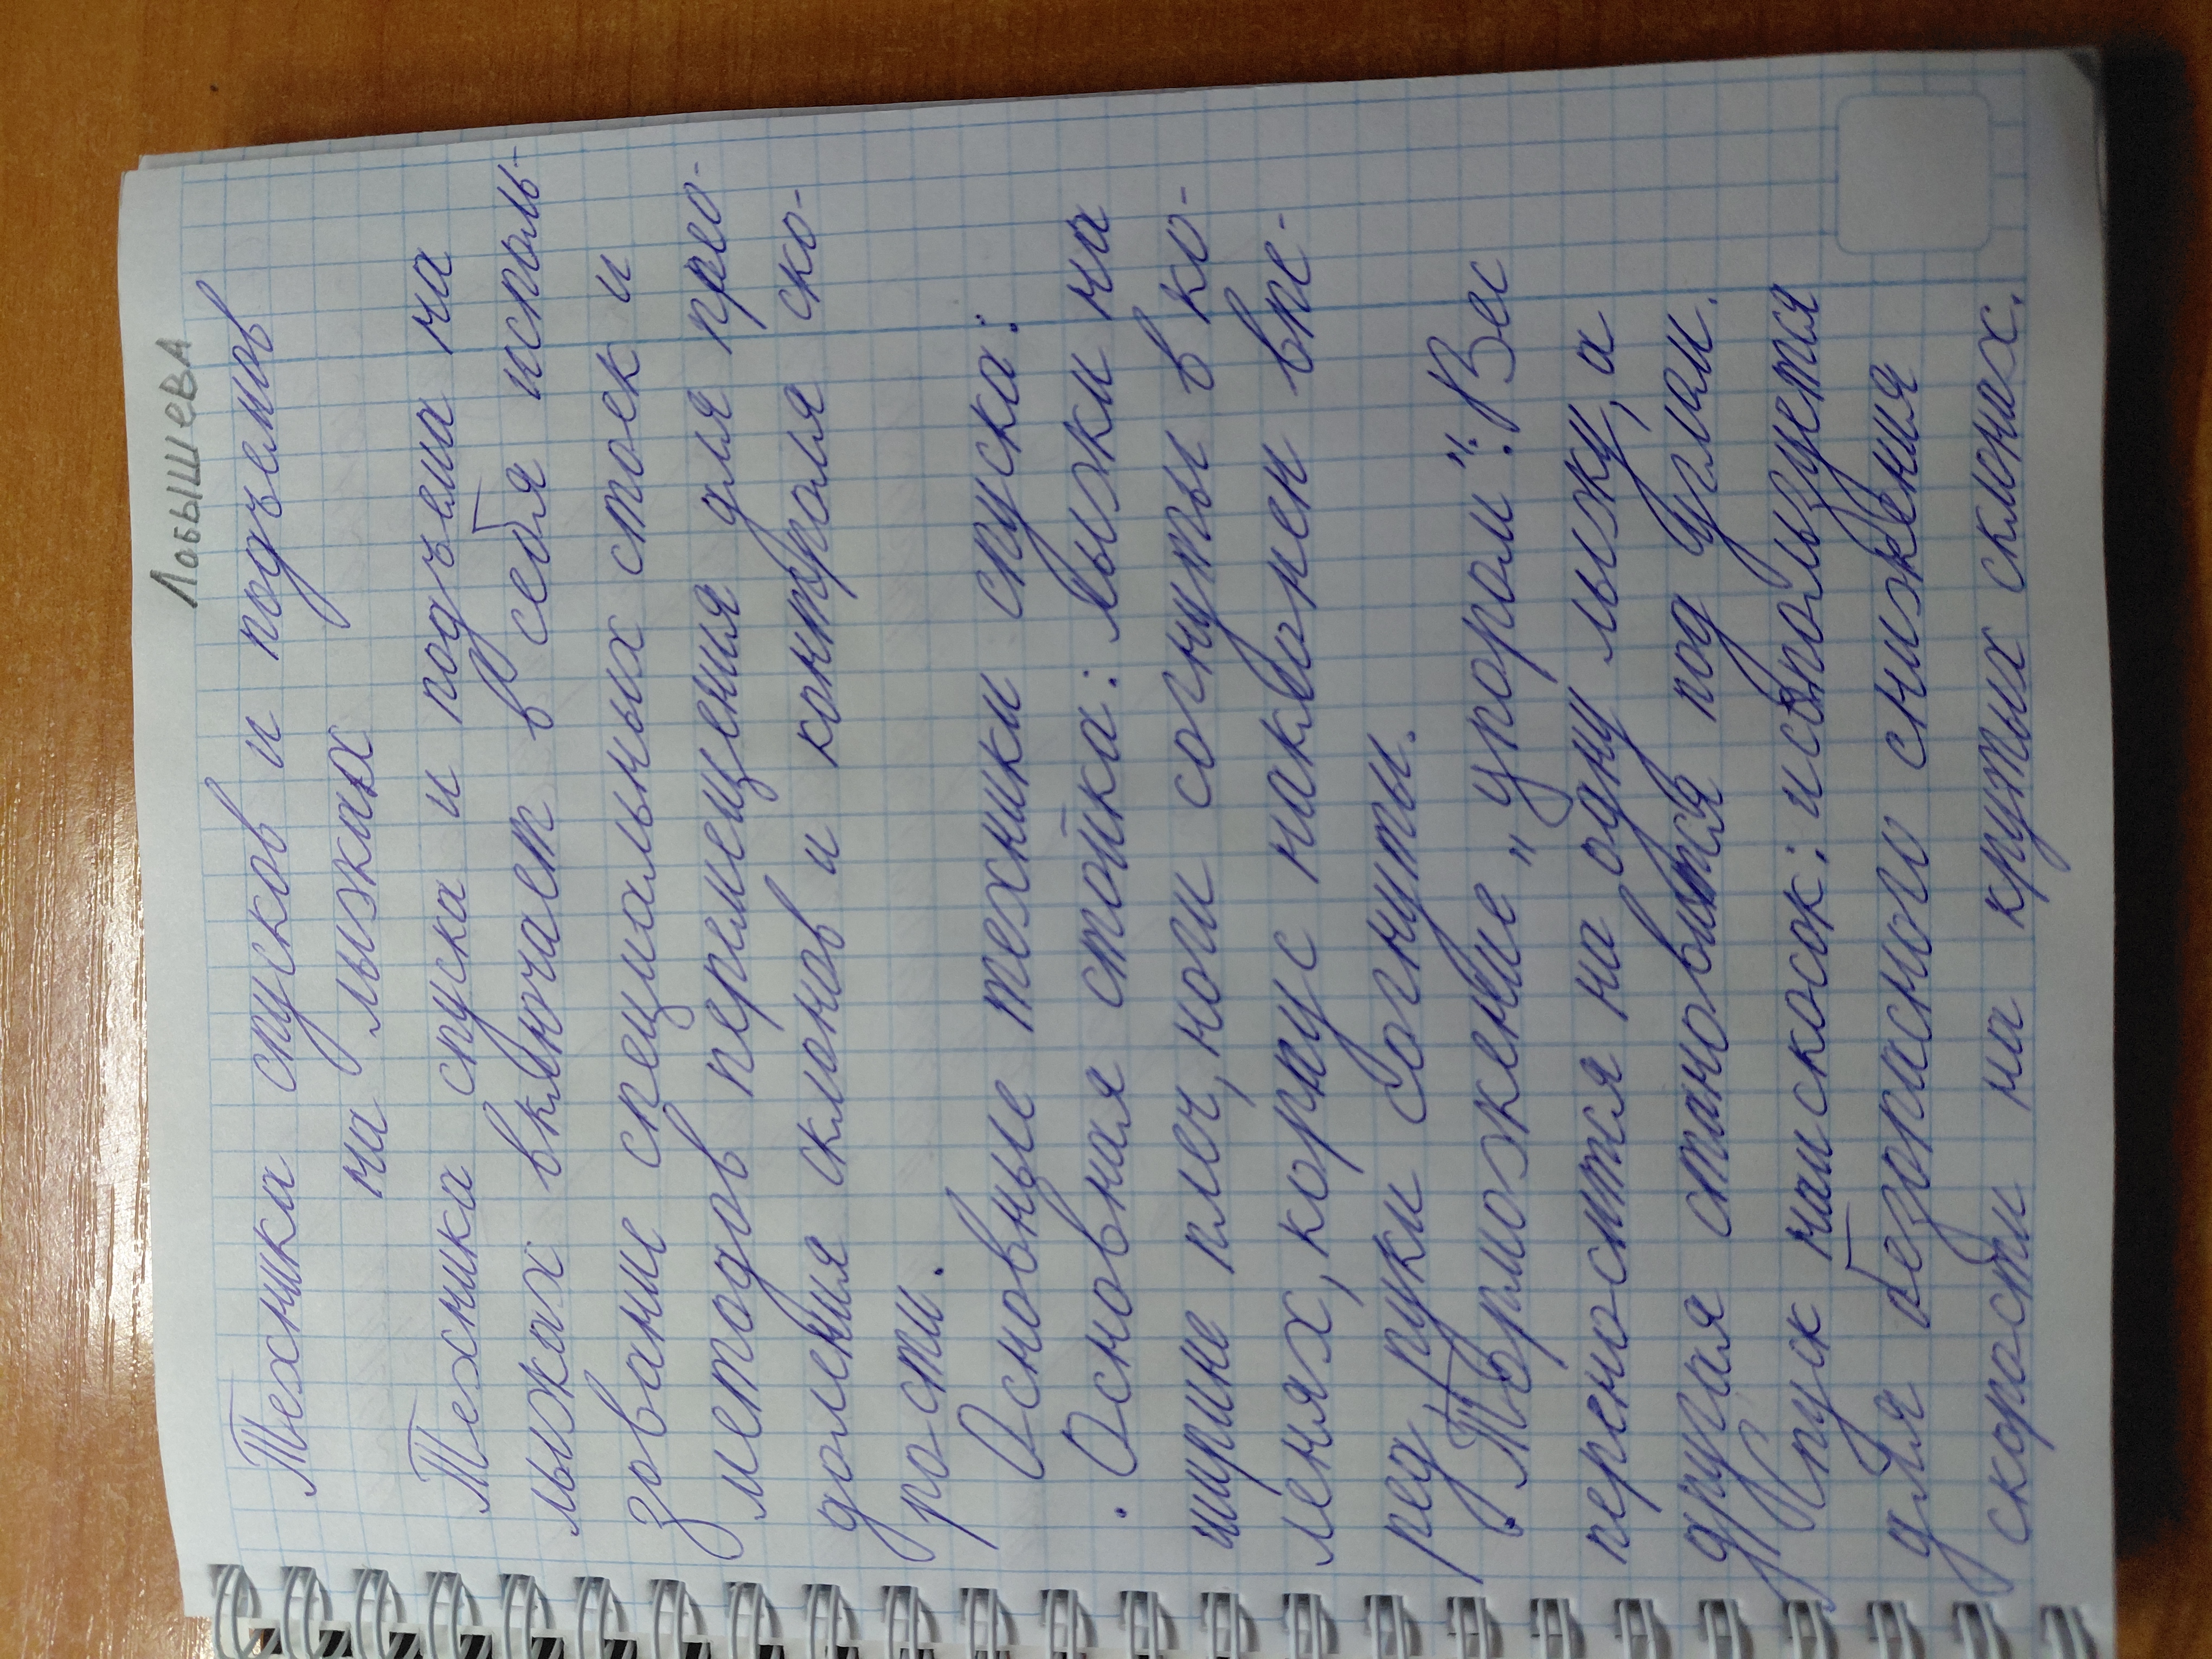 Лобышева
Техника спусков и подъемов
на лыжах
Техника спуска и подъема на
лыжах включает в себя исполь-
зование специальных стоек и
методов перемещения для прео-
доления склонов и контроля ско-
рости.
Основные техники спуска:
· Основная стойка: лыжи на
ширине плеч, ноги согнуты в ко-
ленях, корпус наклонен впе-
ред, руки согнуты.
· Торможение „упором": Вес
переносится на одну лыжу, а
другая становится под углом.
Спуск наискосок: используется
для безопасного снижения
скорости на крутых склонах.